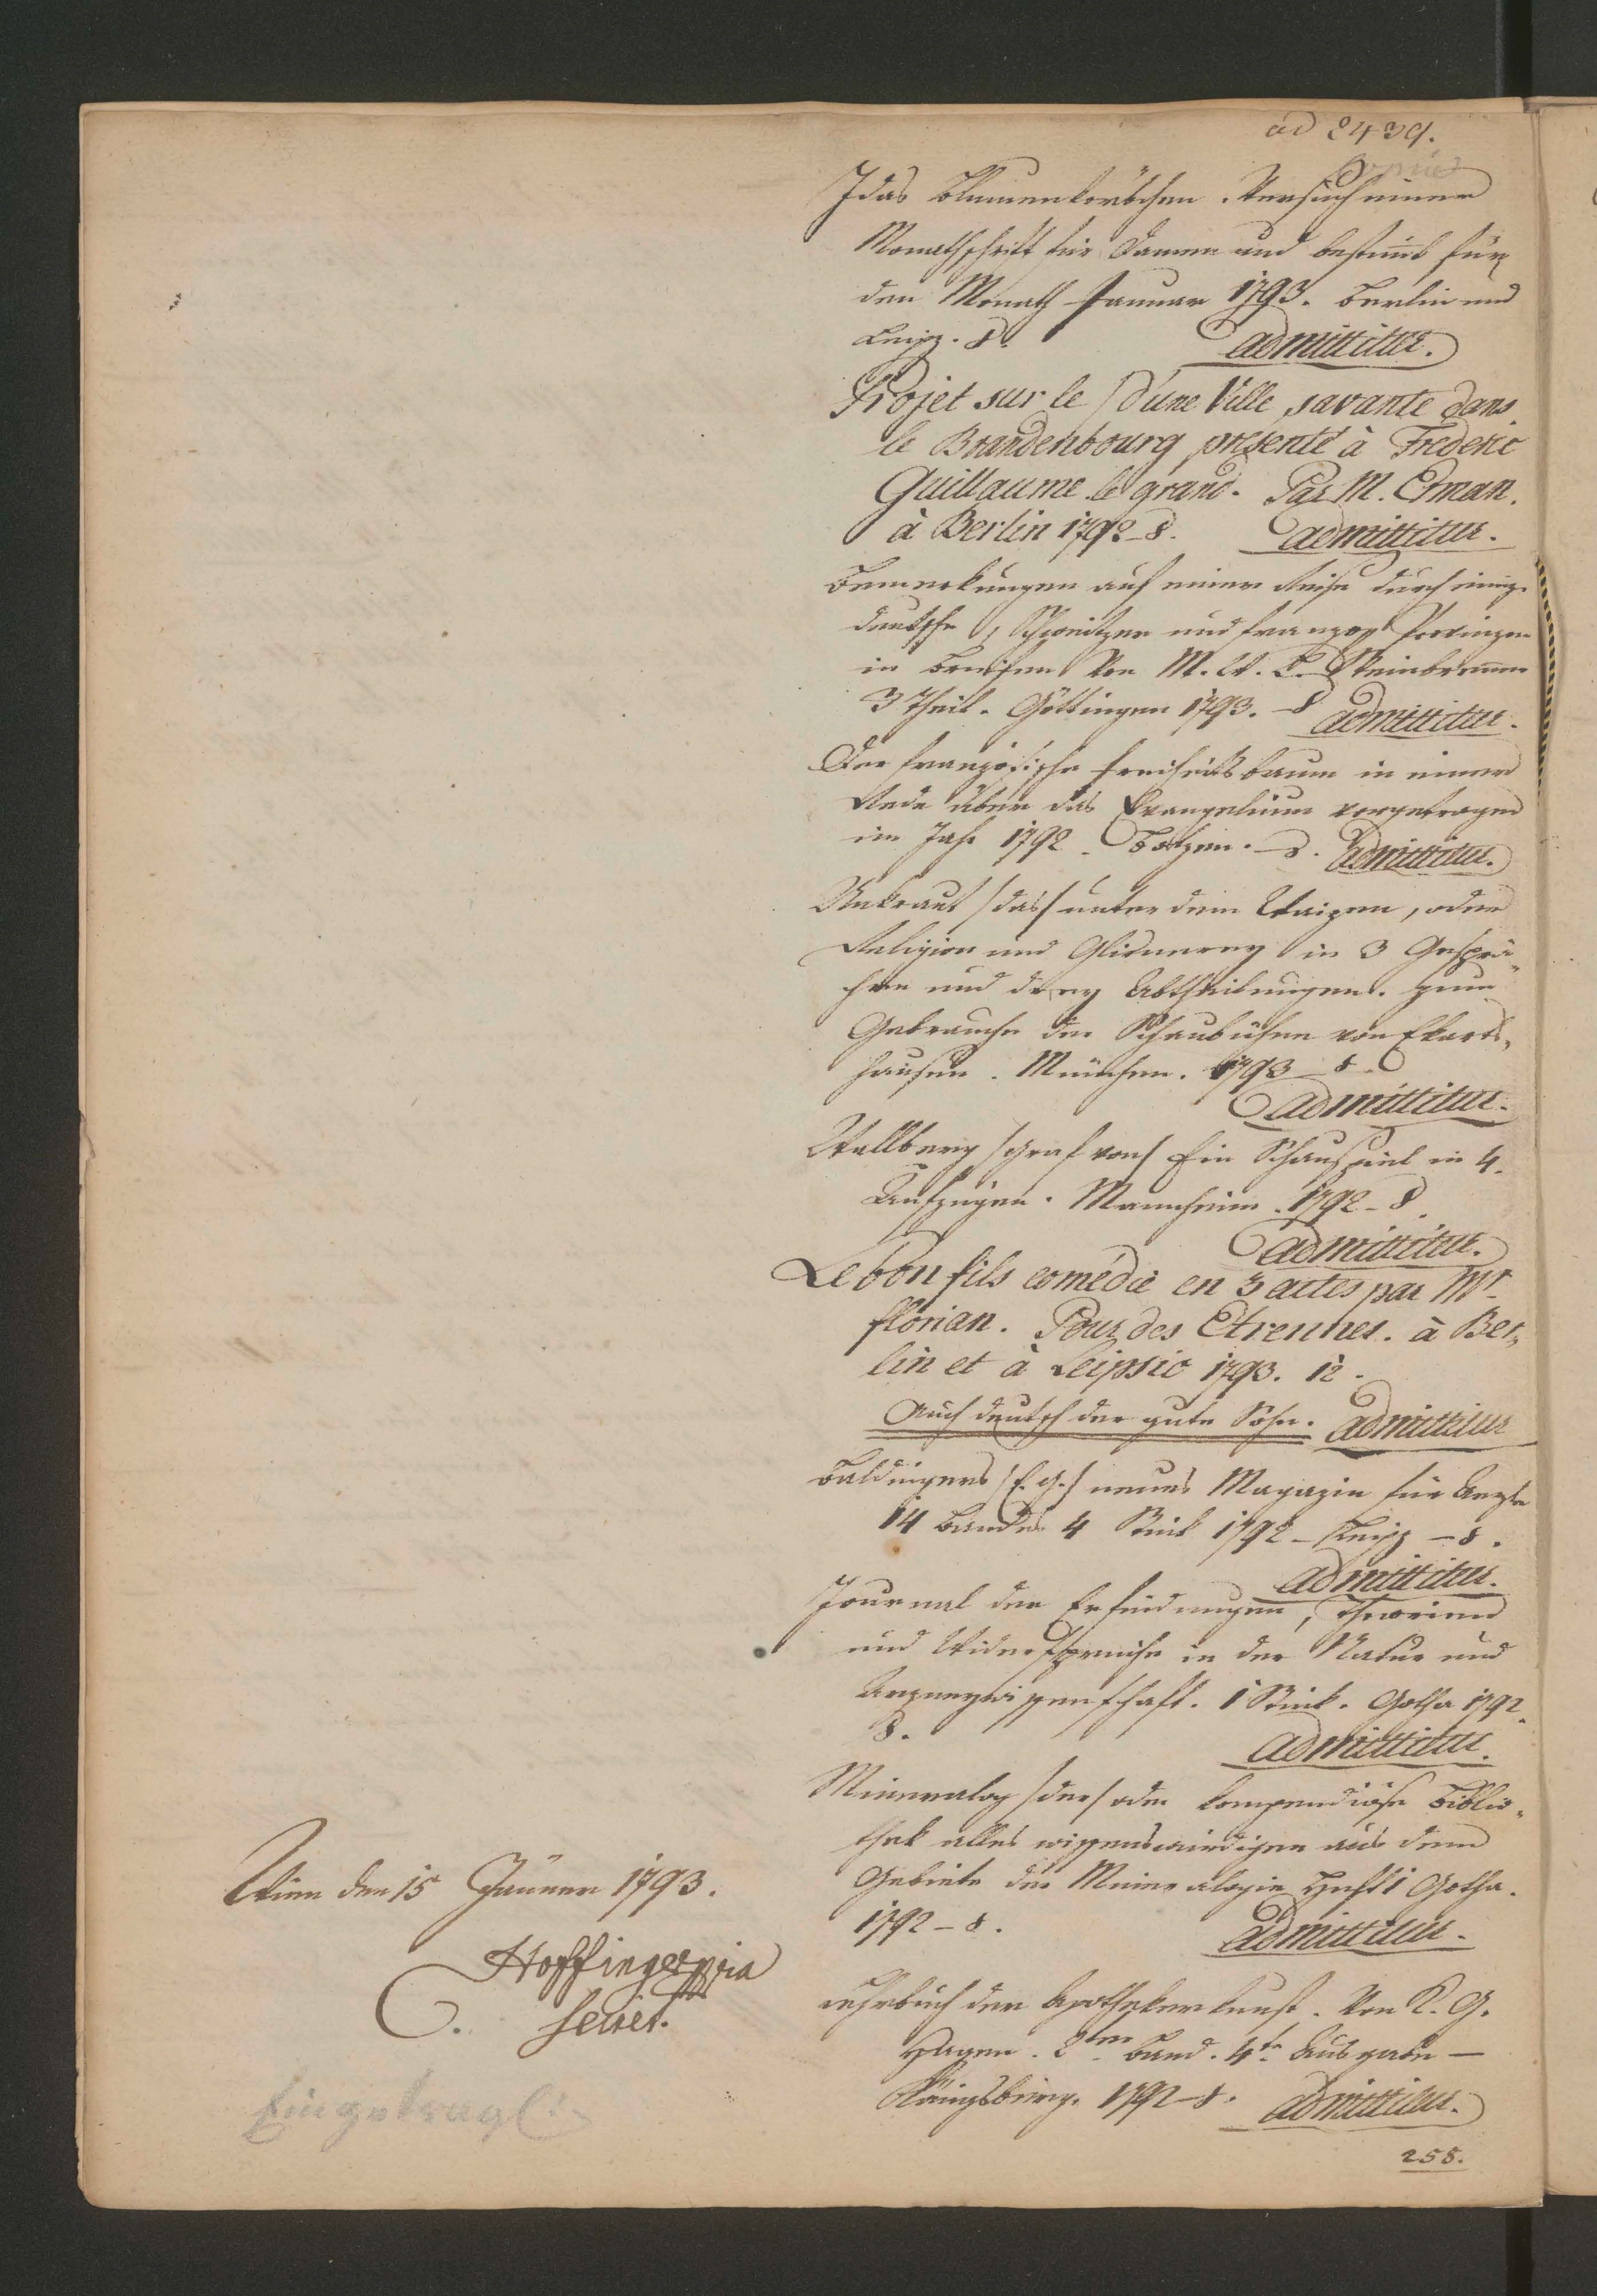 ad 2439.
Idas Blumenkörbchen. Versuch einer
Monathschrift für Damen und bestimt für
den Monath Januar 1793. Berlin und
Leipz. 8.
admittitur.
Projet sur le / d'une Ville savante dans
le Brandenbourg presenté à Frederic
Guillaume le grand. Par M. Erman.
à Berlin 1792 - 8. admittitur.
Bemerkungen auf einer Reise durch einige
deutsche, Schweitzer und franzos. Provinzen
in Briefen von M. W. L. Steinbrenner
3 Theil. Göttingen 1793. - 8 admittitur.
Der französische Freiheitsbaum in einer
Rede über das Evangelium vorgetragen
im Jahr 1792. Botzen. - 8. admittitur.
Unkraut /das/ unter dem Waizen, oder
Religion und Gleisnerey in 3 Gesprä-
chen und drey Abtheilungen. zum
Gebrauche der Schaubühne von Ekarts-
hausen. München. 1793 - 8.
admittitur.
Wallberg /Graf von/ Ein Schauspiel in 4.
Aufzügen. Mannheim. 1792 - 8.
admittitur.
Le bon fils comédie en 3 actes par Mr.
florian. Pour des Etrennes. à Ber-
lin et à Leipsic 1793. 12.
Auch deutsch der gute Sohn. admittitur
Baldingers /E. G./ neues Magazin für Aerzte
14 Bandes 4 Stück 1792 - Leipz - 8.
admittitur.
Journal der Erfindungen, Theorien
und Widersprüche in der Natur und
Arzneywissenschaft. 1 Stück. Gotha 1792
8.
admittitur.
Mineralog /der/ oder kompendiöse Biblio-
thek alles wissenswürdigen aus dem
Gebiete der Mineralogie Heft 1 Gotha.
1792 - 8.
admittitur.
Lehrbuch der Apothekerkunst. Von K. G.
Hagen. 2ter Band. 4te Ausgabe —
Königsberg. 1792 - 8. admittitur.
258.
Wien den 15t Jänner 1793.
Hoffinger mpria
Secret.
Eingetrag: